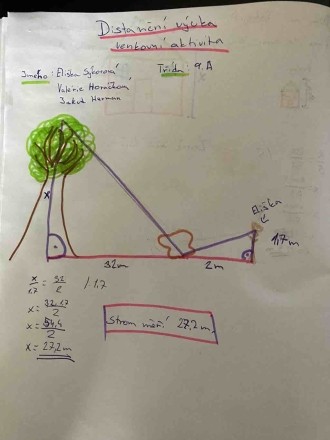 Distanční výuka
venkovní aktivita
Jméno: Eliška Sýkorová
Třída: 9.A
Valerie Horníčková
Jakub Herman
Eliška
x
1,7m
32m
2m
x/1,7 = 32/2 /·1,7
x = 32·1,7/2
x = 54,4/2
x = 27,2 m
Strom měří 27,2 m.